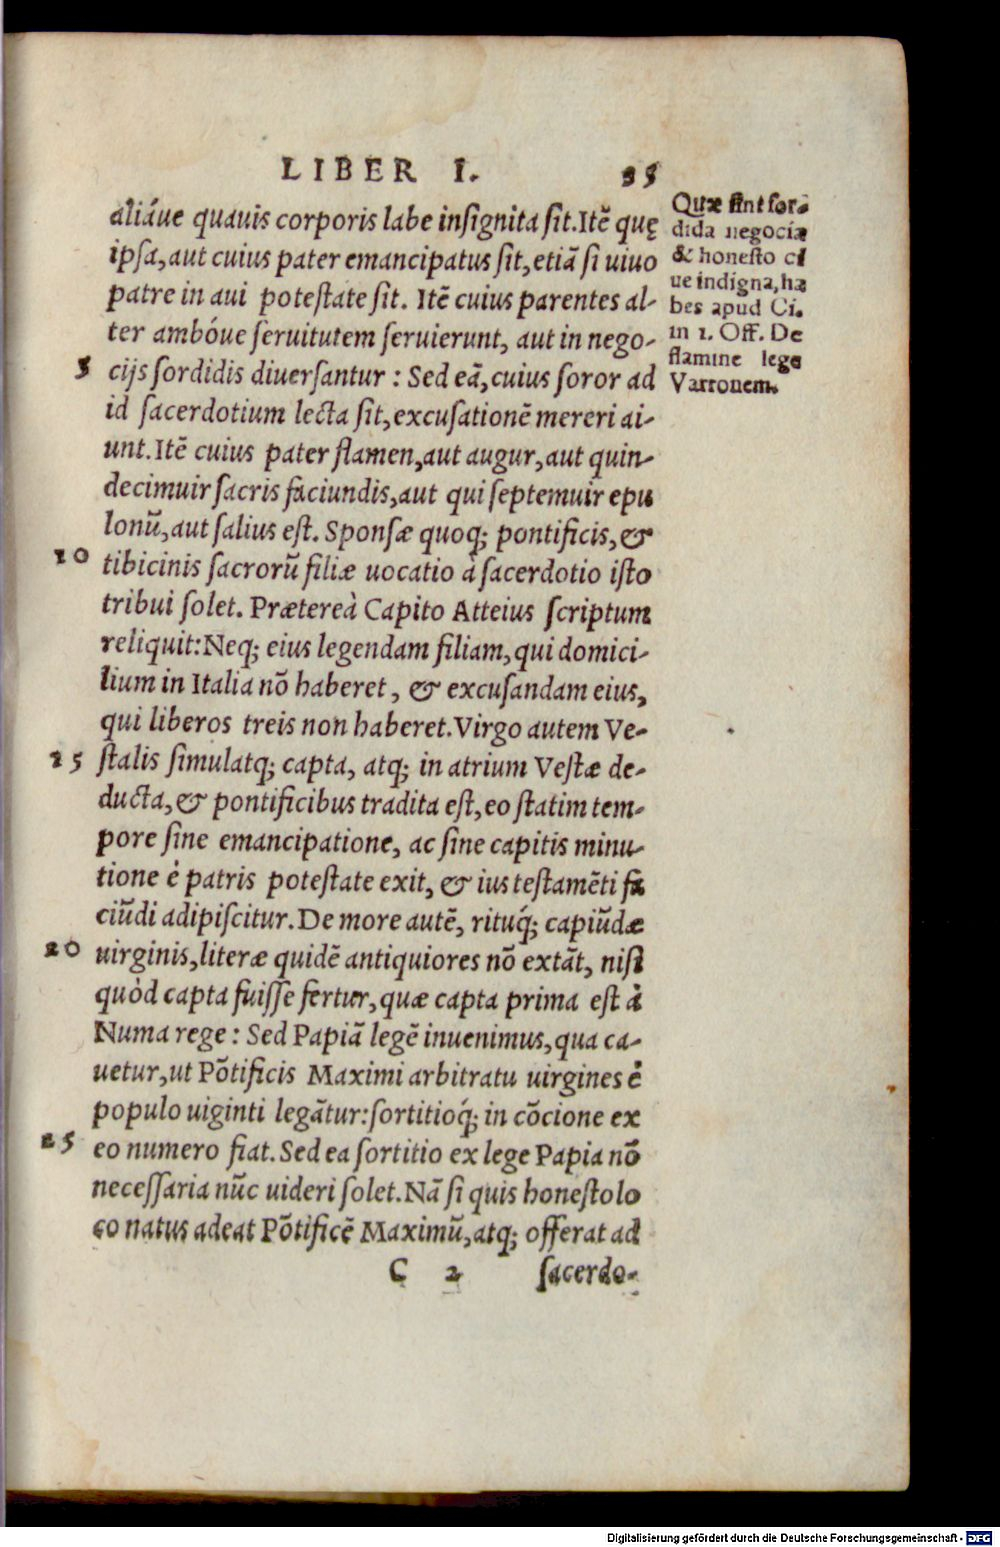 LIBER I. 35
aliáue quauis corporis labe insignita sit. Itē quę
ipsa, aut cuius pater emancipatus sit, etiā si uiuo
patre in aui potestate sit. Itē cuius parentes al-
ter ambóue seruitutem seruierunt, aut in nego-
5 cijs sordidis diuersantur : Sed eā, cuius soror ad
id sacerdotium lecta sit, excusationē mereri ai-
unt. Itē cuius pater flamen, aut augur, aut quin-
decimuir sacris faciundis, aut qui septemuir epu
lonũ, aut salius est. Sponsæ quoq; pontificis, &
10 tibicinis sacrorũ filiæ uocatio à sacerdotio isto
tribui solet. Prætereà Capito Atteius scriptum
reliquit: Neq; eius legendam filiam, qui domici-
lium in Italia nō haberet, & excusandam eius,
qui liberos treis non haberet. Virgo autem Ve-
15 stalis simulatq; capta, atq; in atrium Vestæ de-
ducta, & pontificibus tradita est, eo statim tem-
pore sine emancipatione, ac sine capitis minu-
tione è patris potestate exit, & ius testamēti fa
ciũdi adipiscitur. De more autē, rituq́; capiũdæ
20 uirginis, literæ quidē antiquiores nō extāt, nisi
quòd capta fuisse fertur, quæ capta prima est à
Numa rege : Sed Papiā legē inuenimus, qua ca-
uetur, ut Pōtificis Maximi arbitratu uirgines è
populo uiginti legātur: sortitioq́; in cōcione ex
25 eo numero fiat. Sed ea sortitio ex lege Papia nō
necessaria nũc uideri solet. Nā si quis honesto lo
co natus adeat Pōtificē Maximũ, atq; offerat ad
C 2 sacerdo-
Quæ sint sor-
dida negocia
& honesto ci
ue indigna, ha
bes apud Ci.
in 1. Off. De
flamine lege
Varronem.
Digitalisierung gefördert durch die Deutsche Forschungsgemeinschaft - DFG